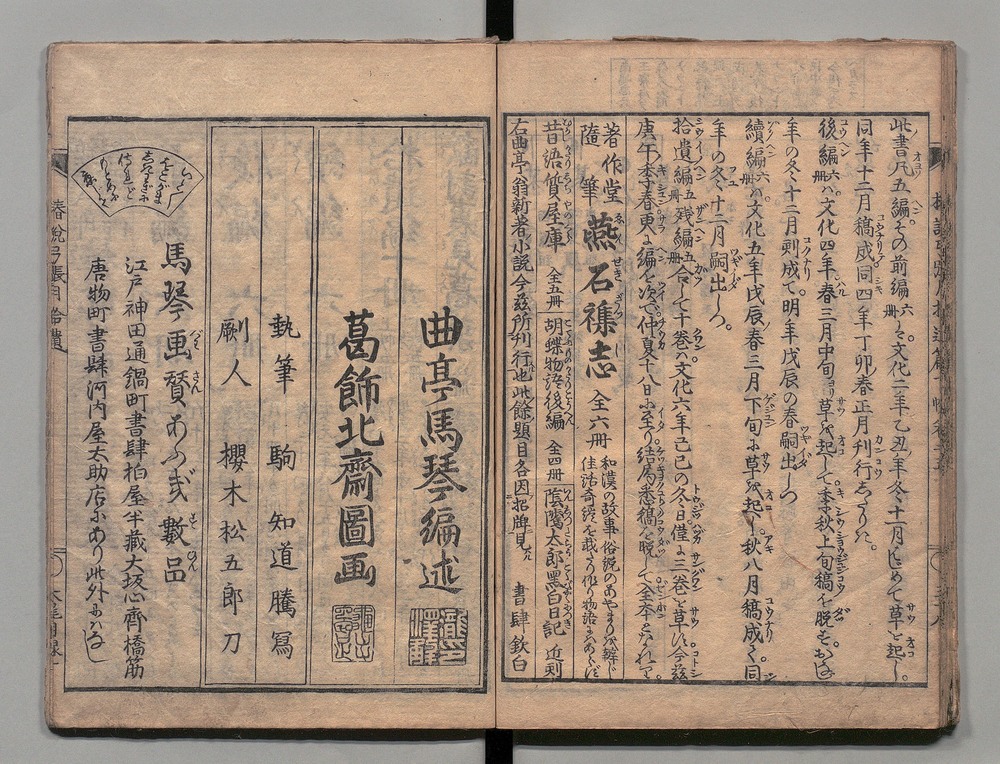 此書凡五編。その前編六冊ハ文化二年乙丑ノ年冬十一月はじめて草を起し。
同年十二月稿成同四年丁卯春正月刊行しをはりぬ。
後編六冊ハ文化四年春三月中旬ヨリ草を起して季秋上旬稿を脱す。おなじ
年の冬十二月刻成て。明年戊辰の春嗣出しつ
續編六冊ハ文化五年戊辰ノ春三月下旬に草を起し。秋八月稿成て同
年の冬十二月嗣出しつ。
拾遺編五冊残編五冊合して十巻ハ文化六年己巳の冬日僅に三巻を草し今茲
庚午季春更に編を次で仲夏十八日に至り結局悉稿を脱して全本となれり
著作堂隨筆 燕石襍志 全六冊 和漢の故事俗説のあやまりを辨じ佳話奇談を載
昔語質屋庫 全五冊 胡蝶物語後編 全四冊 陰隲太郎黑白日記 近刻
右曲亭翁新著小説今茲所刊行也此餘題目各因招牌見 書肆欽白
曲亭馬琴編述
葛飾北齋圖画
執筆 駒 知道騰寫
剞人 櫻木松五郎刀
馬琴画賛あふぎ數品
江戸神田通鍋町書肆柏屋半藏大坂心齊橋筋
唐物町書肆河内屋太助店にあり此外になし
春説弓張月拾遺